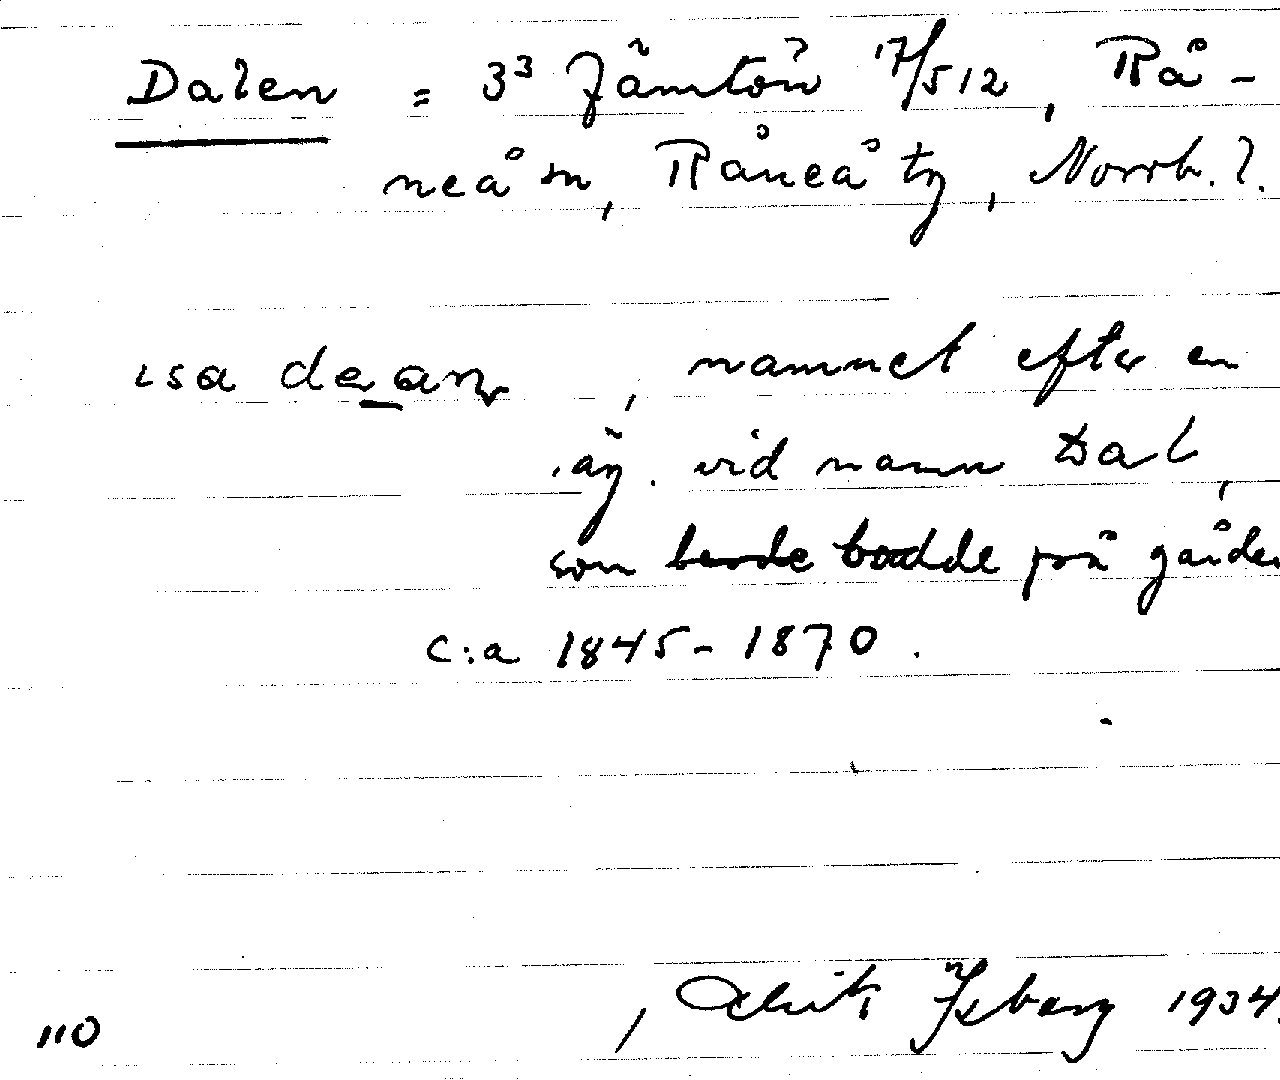 Dalen = 3³ Jämtön 17/512, Rå-
neå sn, Råneå tg, Norrb. l.
, namnet efter en
äg. vid namn Dal,
som bodde på gården
c:a 1845-1870.
Isberg 1934.
110